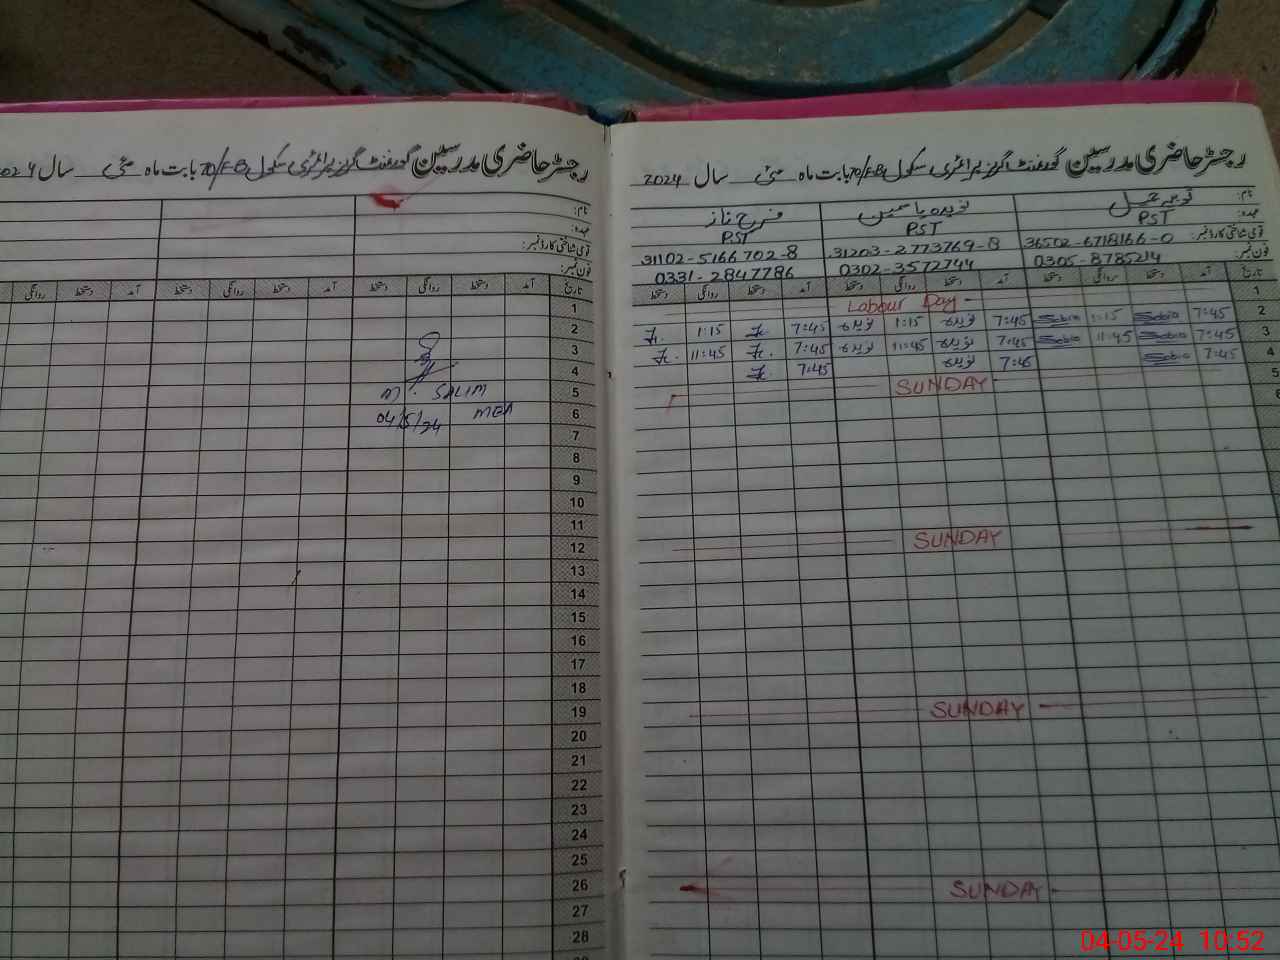 رجسٹر حاضری مدرسین گورنمنٹ گرلز پرائمری سکول 70/FB بابت ماہ مئی سال 2024
نام:
عہدہ:
قومی شناختی کارڈ نمبر:
فون نمبر:
تاریخ آمد دستخط روانگی دستخط آمد دستخط روانگی دستخط آمد دستخط روانگی
1
2
3
4
5
6
7
8
9
10
11
12
13
14
15
16
17
18
19
20
21
22
23
24
25
26
27
28
M. SALIM
04/5/24 MEA
رجسٹر حاضری مدرسین گورنمنٹ گرلز پرائمری سکول 70/FB بابت ماہ مئی سال 2024
نام: نویدہ یاسمین فرح ناز
عہدہ: PST PST PST
قومی شناختی کارڈ نمبر: 36502-6718166-0 31203-2773769-8 31102-5166702-8
فون نمبر: 0305-8785214 0302-3572744 0331-2847786
تاریخ آمد دستخط روانگی دستخط آمد دستخط روانگی دستخط آمد دستخط روانگی دستخط
1 Labour Day
2 7:45 Sobia 1:15 Sobia 7:45 نویدہ 1:15 نویدہ 7:45 1:15
3 7:45 Sobia 11:45 Sobia 7:45 نویدہ 11:45 نویدہ 7:45 11:45
4 7:45 Sobia 7:45 نویدہ 7:45
5 SUNDAY
6
SUNDAY
SUNDAY
SUNDAY
04-05-24 10:52